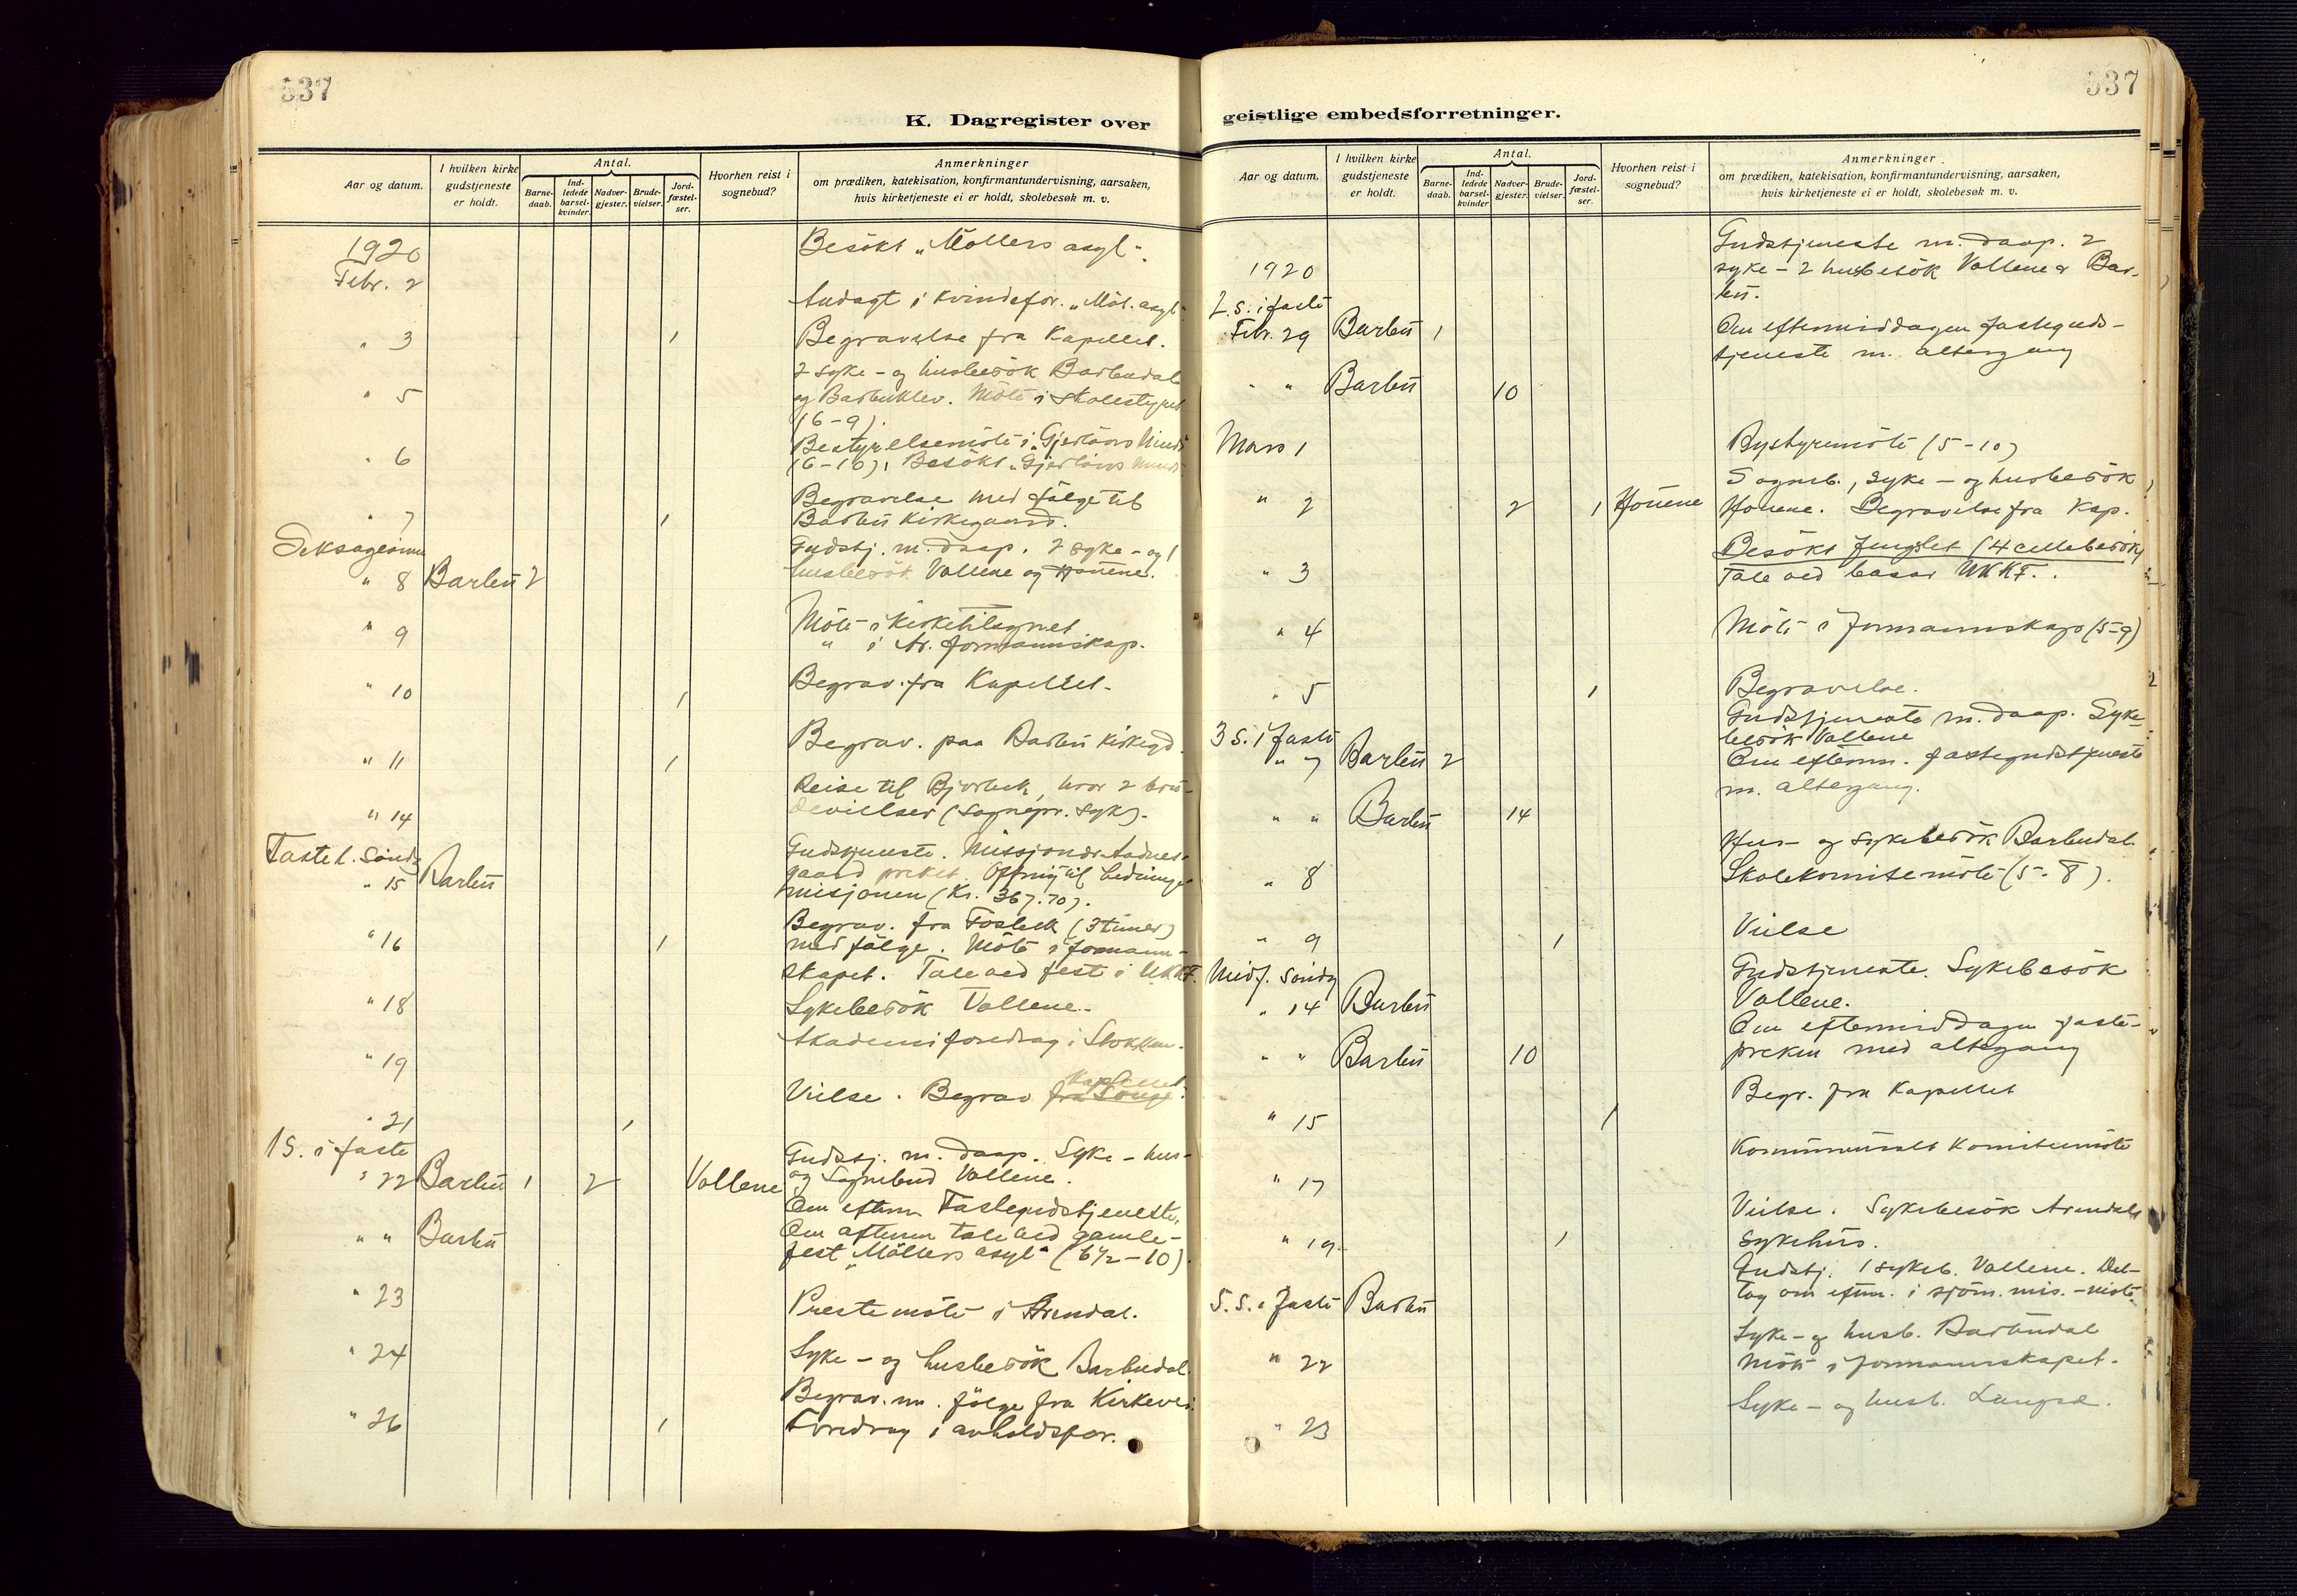 537
K. Dagregister over
Aar og datum.
I hvilken kirke gudstjeneste er holdt.
Antal.
Barne-daab.
Ind-ledede barsel-kvinder.
Nadver-gjester.
Brude-vielser.
Jord-fæstel-ser.
Hvorhen reist i sognebud?
Anmerkninger
om prædiken, katekisation, konfirmantundervisning, aarsaken,
hvis kirketjeneste ei er holdt, skolebesøk m. v.
1920
Febr. 2 Besökt „Möllers asyl".
Andagt i Kvindefor. „Möl. asyl"
" 3 1 Begravelse fra Kapellet.
2 syke- og husbesök Barbudal
" 5 og Barbuklev. Möte i Skolestyret
(6-9).
Bestyrelsemöte i „Gjerlöws Minde"
" 6 (6-10), Besökt „Gjerlöws Minde"
Begravelse med fölge til
" 7 1 Barbu Kirkegaard.
Seksagesima Gudstj. m. daap. 2 syke- og 1
" 8 Barbu 2 husbesök Vollene og Houene.
Möte i Kirketilsynet
" 9 " i Ar. formannskap.
" 10 1 Begrav. fra Kapellet.
" 11 1 Begrav. paa Barbu Kirkegd.
Reise til Bjorbek, hvor 2 bru-
" 14 devielser (Sognepr. syk).
Fastel. Sönd. Gudstjeneste. Missionær
" 15 Barbu preket. Offring til
misjonen (Kr. 367.70).
Begrav. fra Fosbek (3 timer)
" 16 1 med fölge. Möte i formann-
skapet. Tale ved fest i UKKF.
" 18 Sykebesök Vollene.
" 19 Akademiforedrag i Stokken.
Kapellet.
" 21 1 Vielse. Begrav fra
1 S. i faste Gudstj. m. daap. Syke- hus-
" 22 Barbu 1 2 Vollene og Sognebud Vollene.
Om efterm. Fastegudstjeneste.
" " Barbu Om aftenen tale ved gamle-
fest „Möllers asyl" (6½-10)
" 23 Prestemöte i Arendal.
" 24 Syke- og husbesök Barbudal.
Begrav. m. fölge fra Kirkevei.
" 26 1 Foredrag i avholdsfor.
537
geistlige embedsforretninger.
Aar og datum.
I hvilken kirke gudstjeneste er holdt.
Antal.
Barne-daab.
Ind-ledede barsel-kvinder
Nadver-gjester.
Brude-vielser.
Jord-fæstel-ser.
Hvorhen reist i sognebud?
Anmerkninger
om prædiken, katekisation, konfirmantundervisning, aarsaken,
hvis kirketjeneste ei er holdt, skolebesøk m. v.
Gudstjeneste m. daap. 2
1920 syke- 2 husbesök Vollene & Bar-
bu.
2. S. i faste
Febr. 29 Barbu 1 Om eftermiddagen fasteguds-
tjeneste m. altergang
" " Barbu 10
Mars 1 Bystyremöte (5-10)
Sogneb., syke- og husbesök
" 2 2 1 Houene Houene. Begravelse fra Kap.
Besökt fengslet (4 cellebesök)
" 3 Tale ved basar UKKF.
" 4 Möte i formannskap (5-9)
" 5 1 Begravelse.
Gudstjeneste m. daap. Syke-
3 S. i faste besök Vollene
" 7 Barbu 2 Om efterm. fastegudstjeneste
m. altergang.
" " Barbu 14
Hus- og sykebesök Barbudal.
" 8 Skolekomitemöte (5-8).
" 9 1 Vielse
Midf. Söndg Gudstjeneste. Sykebesök
" 14 Barbu Vollene.
Om eftermiddagen faste-
" " Barbu 10 preken med altergang
" 15 1 Begr. fra Kapellet
" 17 Kommunalt Komitemöte
Vielse. Sykebesök Arendals
" 19 1 Sykehus.
Gudstj. 1 sykeb. Vollene. Del-
5. S. i Faste Barbu tog om efterm. i sjöm. mis. -möte
Syke- og husb. Barbudal
" 22 Möte i formannskapet.
" 23 Syke- og husb. Langsæ.